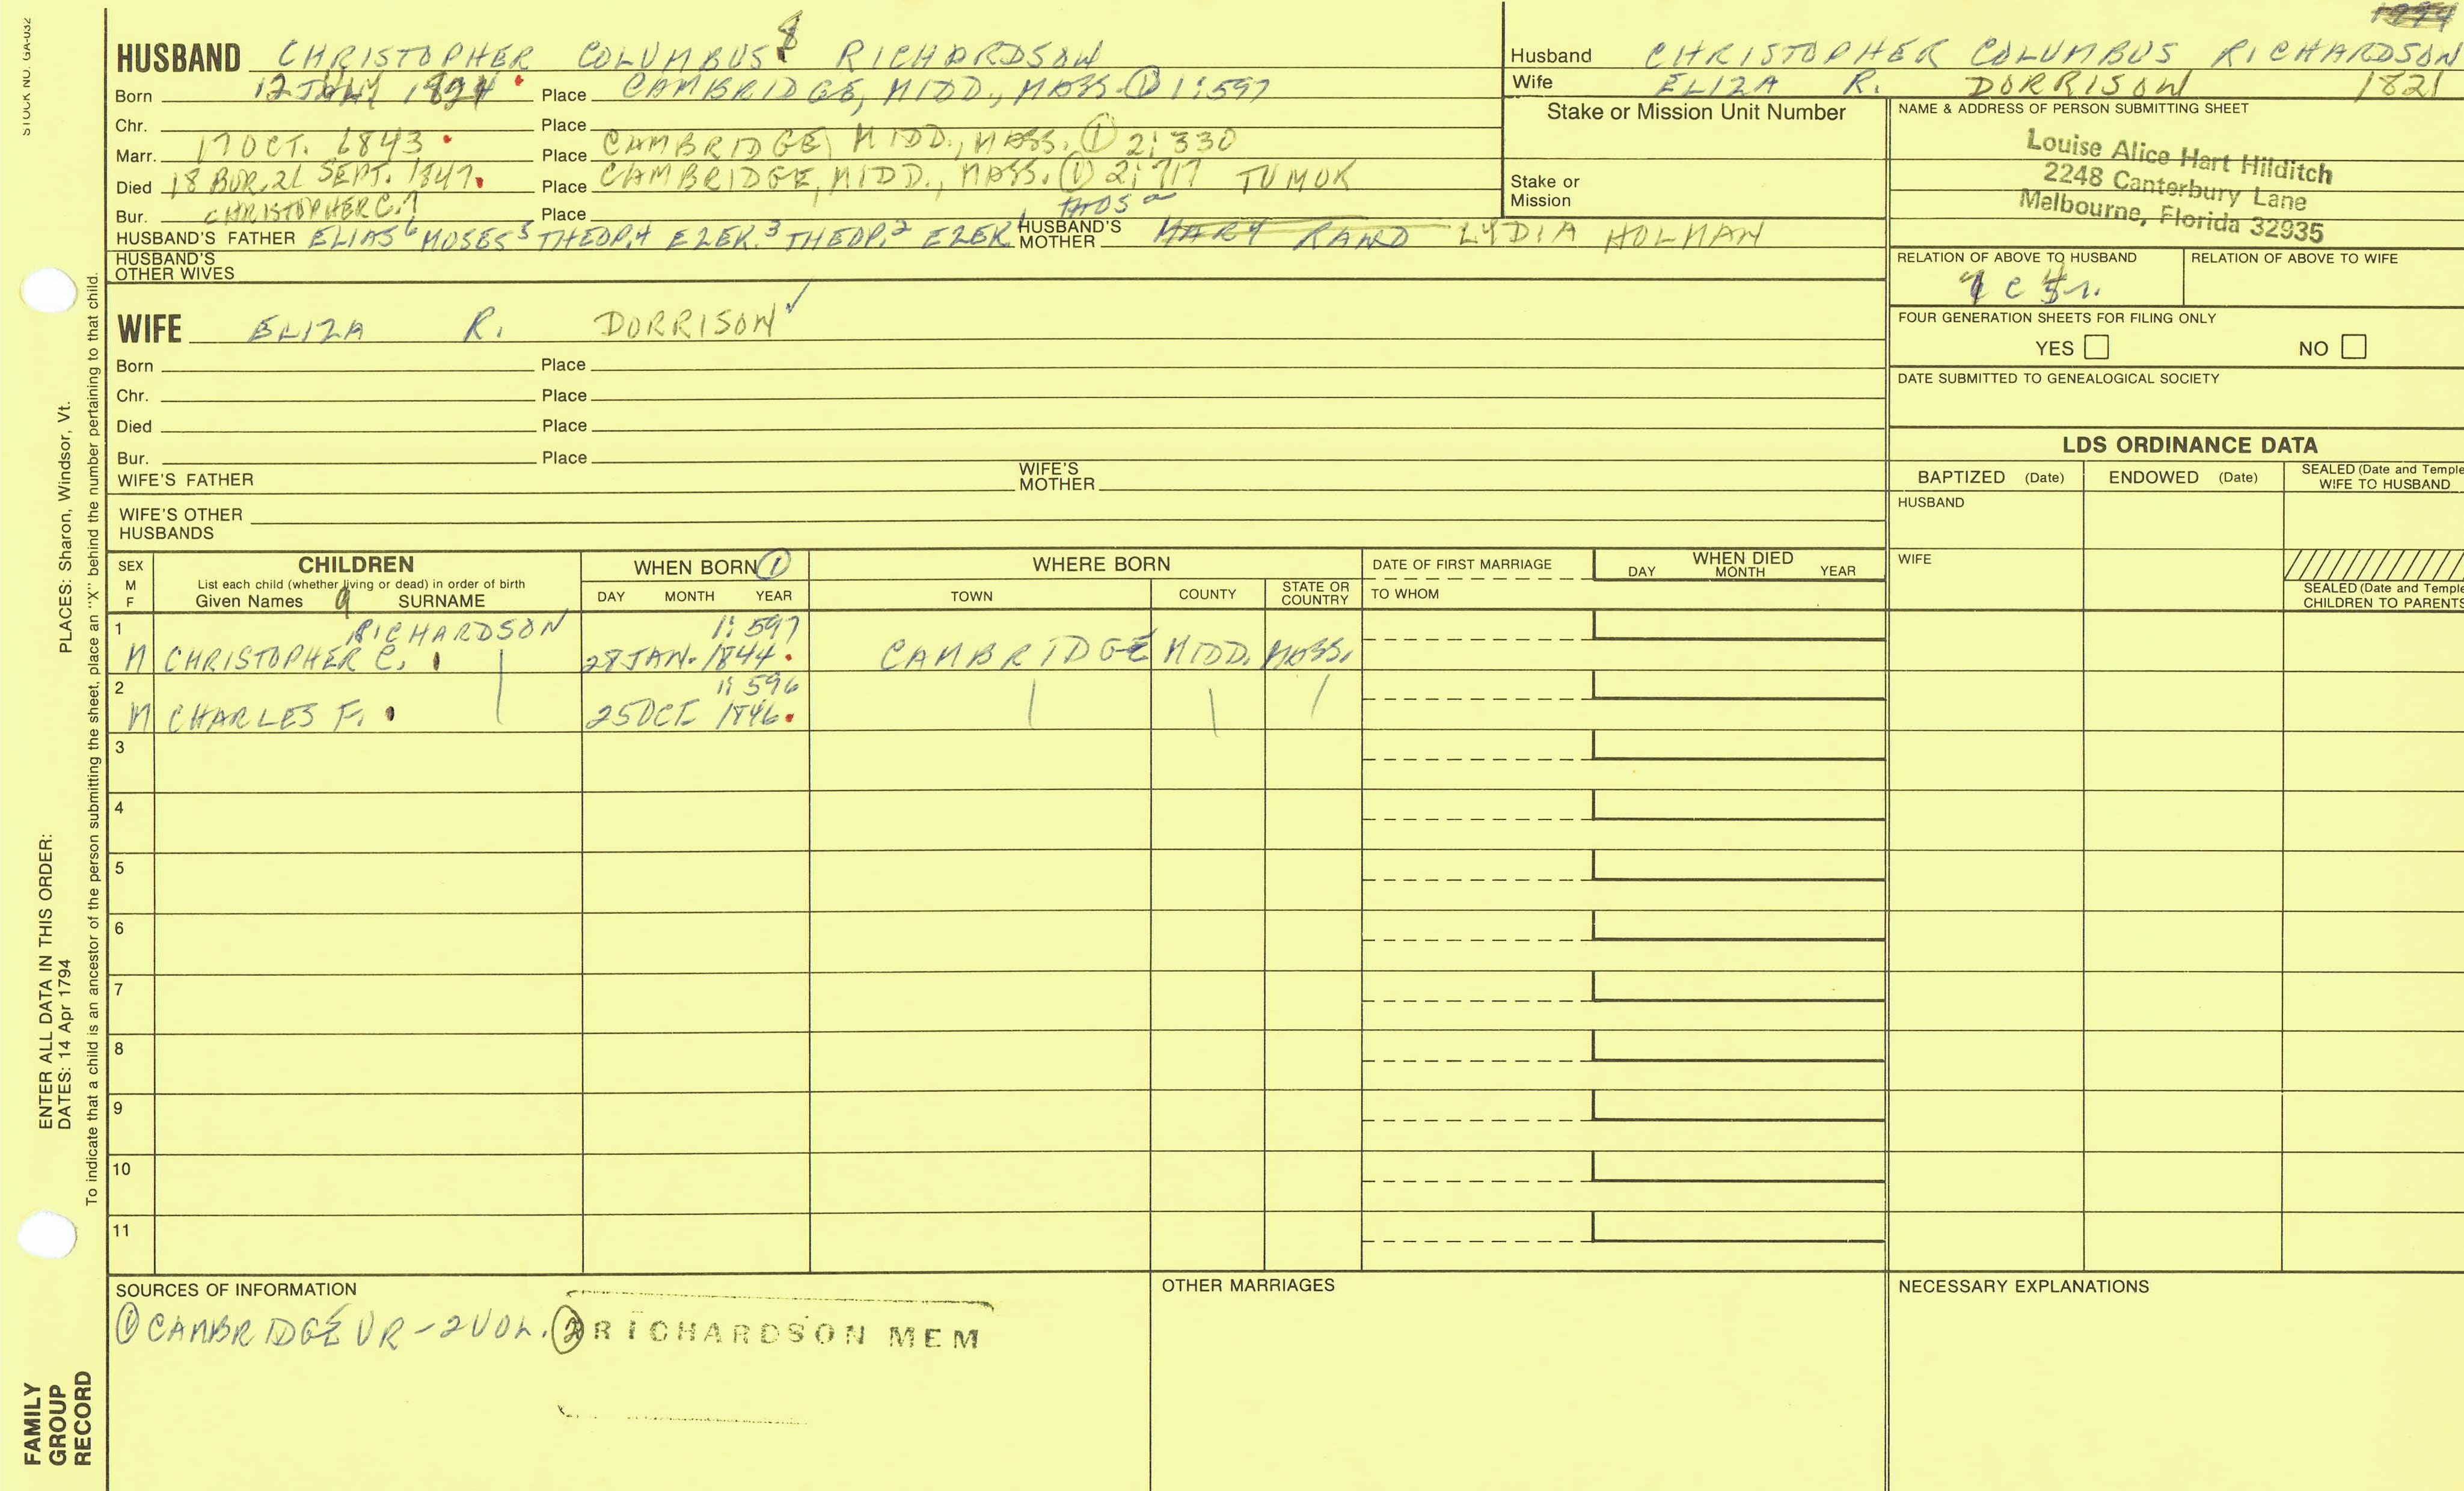 STOCK NO. GA-032
HUSBAND CHRISTOPHER COLUMBUS 8 RICHARDSON
Born Place CAMBRIDGE, MIDD., MASS. ① 1:597
Chr. Place
Marr. 17 OCT. 1843 Place CAMBRIDGE, MIDD., MASS. ① 2:330
Died 18 BUR. 21 SEPT. 1847 Place CAMBRIDGE, MIDD., MASS. ① 2:717 TUMOR
Bur. CHRISTOPHER C.7 Place
HUSBAND'S FATHER ELIAS 6 MOSES 5 THEOP. 4 EZEK. 3 THEOP. 2 EZEK. 1 HUSBAND'S MOTHER MARY RAND LYDIA HOLMAN
HUSBAND'S OTHER WIVES
Husband CHRISTOPHER COLUMBUS RICHARDSON
Wife ELIZA R. DORRISON 1821
Stake or Mission Unit Number
Stake or
Mission
NAME & ADDRESS OF PERSON SUBMITTING SHEET
Louise Alice Hart Hilditch
2248 Canterbury Lane
Melbourne, Florida 32935
RELATION OF ABOVE TO HUSBAND RELATION OF ABOVE TO WIFE
FOUR GENERATION SHEETS FOR FILING ONLY
YES NO
DATE SUBMITTED TO GENEALOGICAL SOCIETY
WIFE ELIZA R. DORRISON ✓
Born Place
Chr. Place
Died Place
Bur. Place
WIFE'S FATHER WIFE'S MOTHER
WIFE'S OTHER
HUSBANDS
LDS ORDINANCE DATA
BAPTIZED (Date) ENDOWED (Date) SEALED (Date and Temple
WIFE TO HUSBAND
HUSBAND
WIFE
SEALED (Date and Temple
CHILDREN TO PARENTS
SEX
M
F
CHILDREN
List each child (whether living or dead) in order of birth
Given Names 9 SURNAME
WHEN BORN ①
DAY MONTH YEAR
WHERE BORN
TOWN COUNTY STATE OR COUNTRY
DATE OF FIRST MARRIAGE
TO WHOM
WHEN DIED
DAY MONTH YEAR
1 RICHARDSON 1:597
M CHRISTOPHER C. 28 JAN. 1844 CAMBRIDGE MIDD. MASS.
2 1:596
M CHARLES F. 25 OCT. 1846
3
4
5
6
7
8
9
10
11
SOURCES OF INFORMATION
① CAMBRIDGE VR - 2 VOL. ② RICHARDSON MEM
OTHER MARRIAGES
NECESSARY EXPLANATIONS
PLACES: Sharon, Windsor, Vt.
ENTER ALL DATA IN THIS ORDER:
DATES: 14 Apr 1794
To indicate that a child is an ancestor of the person submitting the sheet, place an "X" behind the number pertaining to that child.
FAMILY
GROUP
RECORD